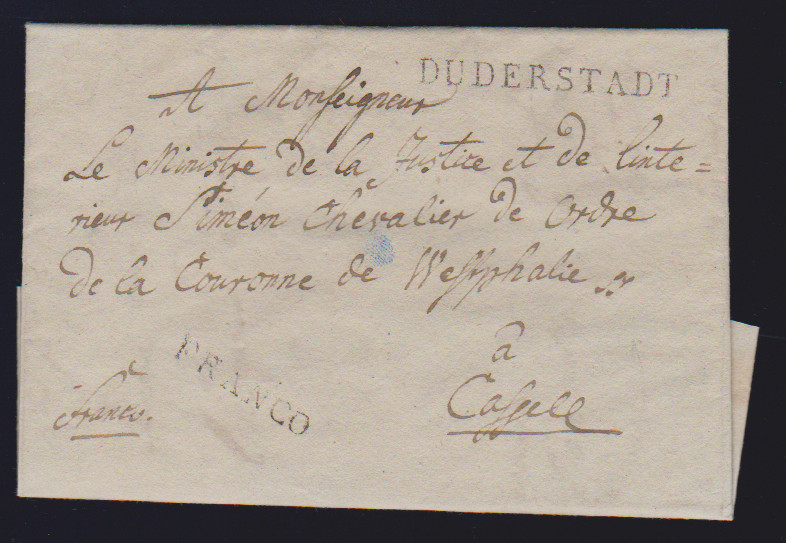 DUDERSTADT
A Monseigneur
Le Ministre de la Justice et de linte=
rieur Siméon Chevalier de Ordre
de la Couronne de Westphalie
a
Cassell
Franco.
FRANCO